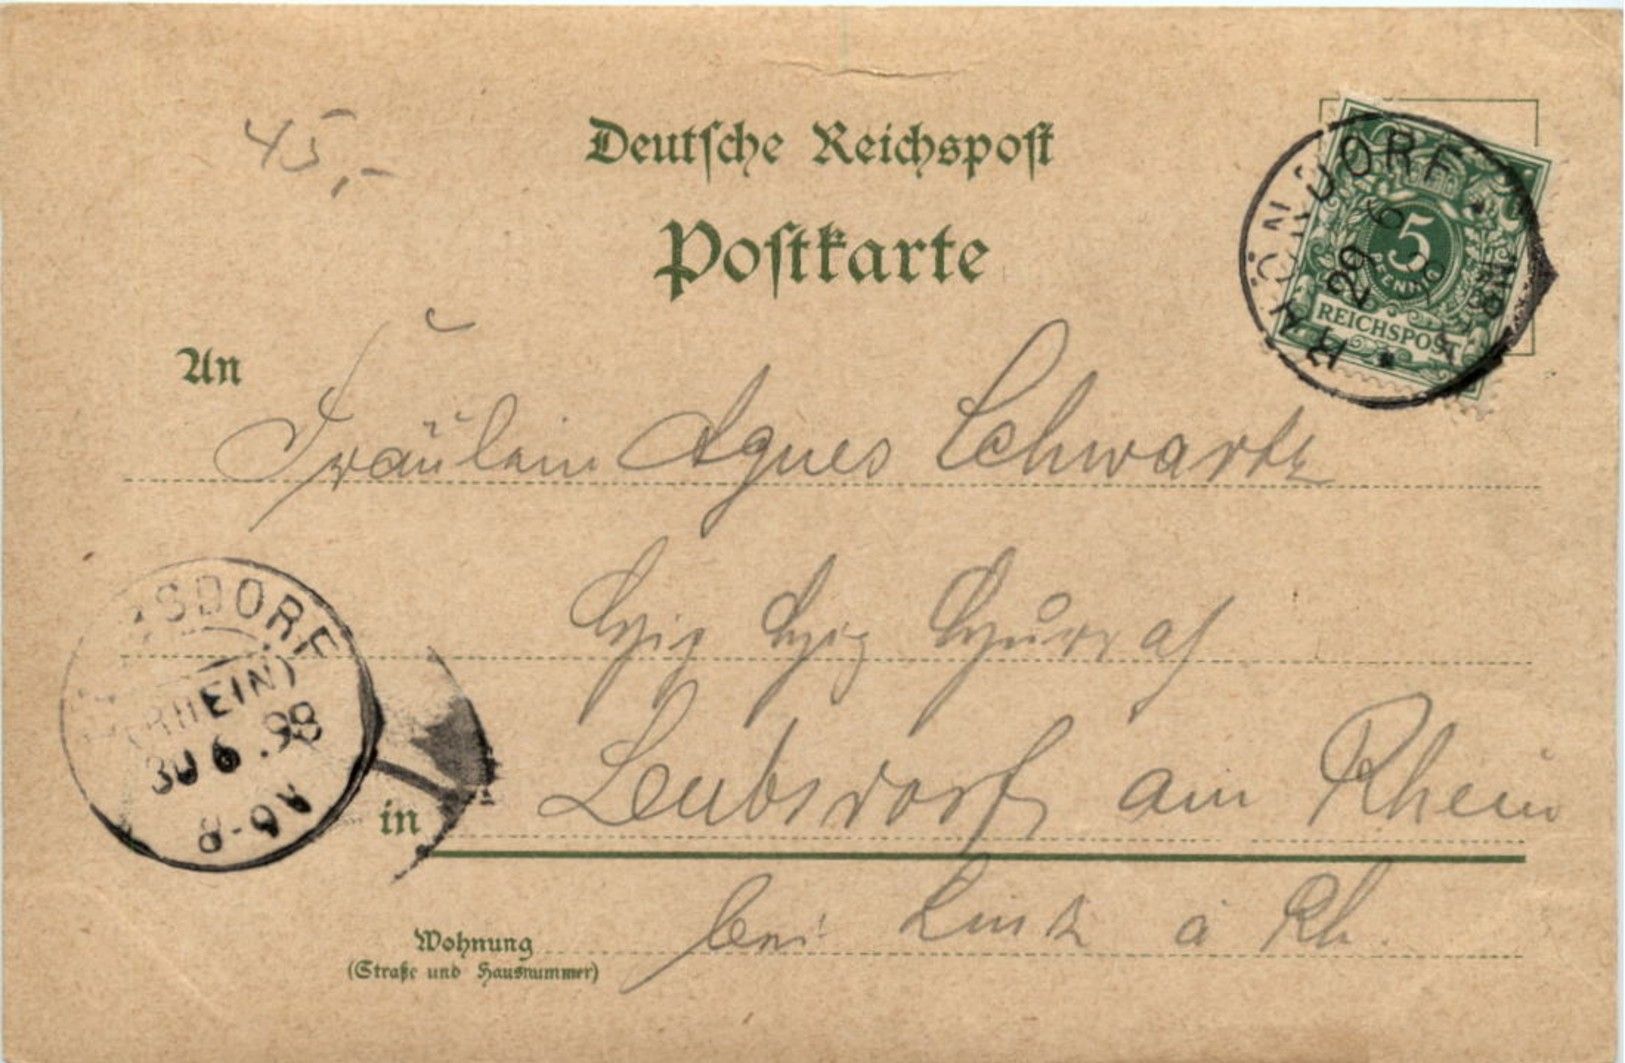 45,-
Deutsche Reichspost
Postkarte
RHÖNDORF
29 6
5
PFENNIG
REICHSPOST
An
Fräulein Agnes Schwartz
SDORF
(RHEIN)
30 6 .98
A6-8
in Leubsdorf am Rhein
bei Linz a Rh.
Wohnung
(Straße und Hausnummer)